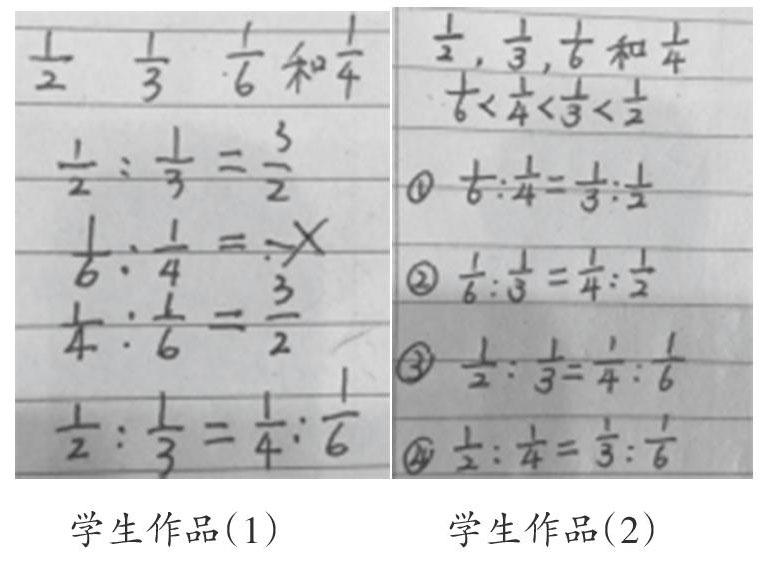 1/2 1/3 1/6 和 1/4
1/2 : 1/3 = 3/2
1/6 : 1/4 =
1/4 : 1/6 = 3/2
1/2 : 1/3 = 1/4 : 1/6
学生作品(1)
1/2, 1/3, 1/6 和 1/4
1/6 < 1/4 < 1/3 < 1/2
① 1/6 : 1/4 = 1/3 : 1/2
② 1/6 : 1/3 = 1/4 : 1/2
③ 1/2 : 1/3 = 1/4 : 1/6
④ 1/2 : 1/4 = 1/3 : 1/6
学生作品(2)